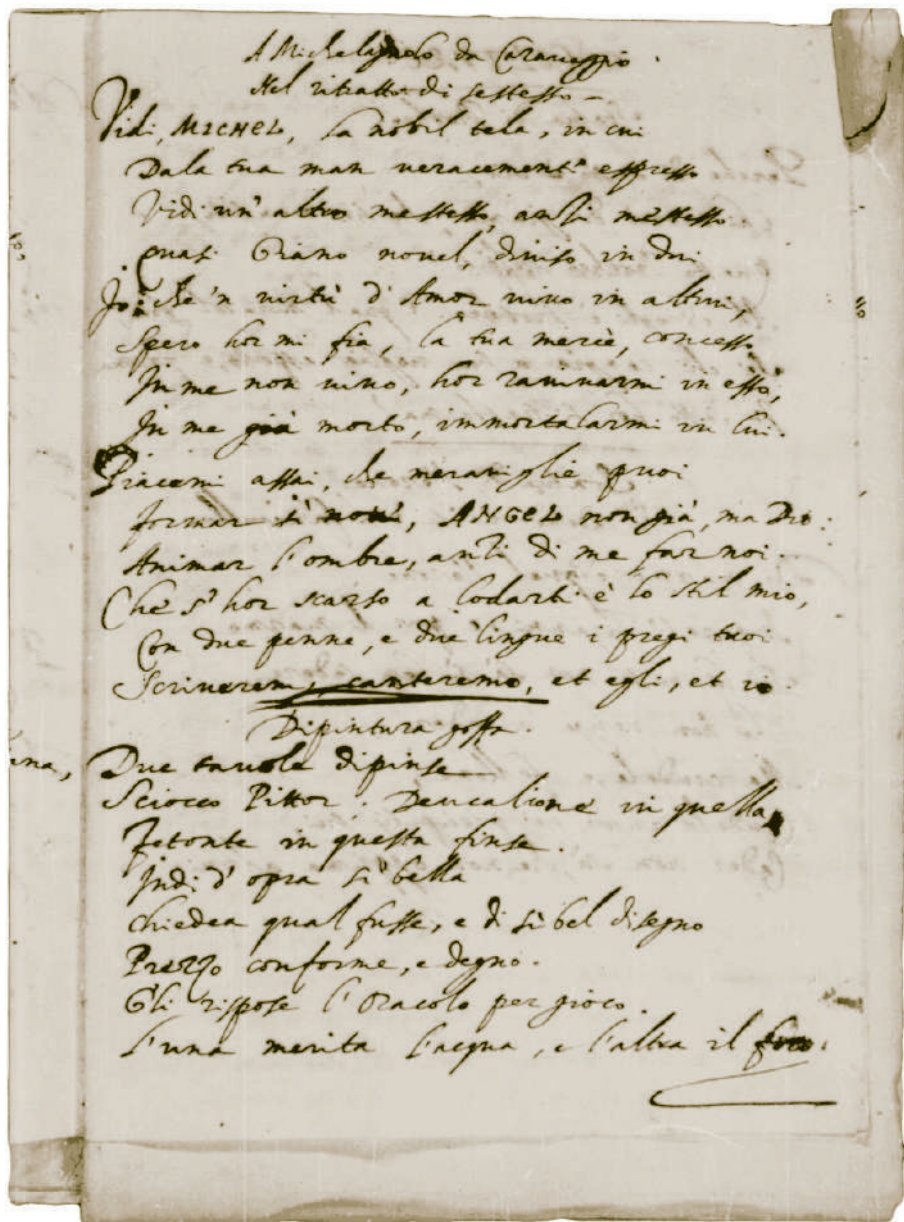 A Michelagnolo da Caravaggio.
Nel ritratto di sestesso
Vidi, MICHEL, la nobil tela, in cui
Dala tua man veracemente espresso
Vidi un' altro mestesso, anzi mestesso
quasi Giano novel, diviso in dui.
Io che 'n virtù d' Amor vivo in altrui,
Spero hor mi fia, la tua mercè, concesso
In me non vivo, hor ravivarmi in esso,
In me già morto, immortalarmi in lui.
Piacemi assai, che meraviglie puoi
formar sì nove, ANGEL non già, ma Dio:
Animar l'ombre, anzi di me far noi.
Che s' hor scarso a lodarti è lo stil mio,
Con due penne, e due lingue i pregi tuoi
Scriverem, canteremo, et egli, et io
Dipintura goffa.
ma,
Due tavole dipinse
Sciocco Pittor. Deucalione in quella
Fetonte in questa finse.
Indi d' opra sì bella
chiedea qual fusse, e di sì bel disegno
Prezzo conforme, e degno.
Gli rispose l' Oracolo per gioco.
l'una merita l'acqua, e l'altra il foco.